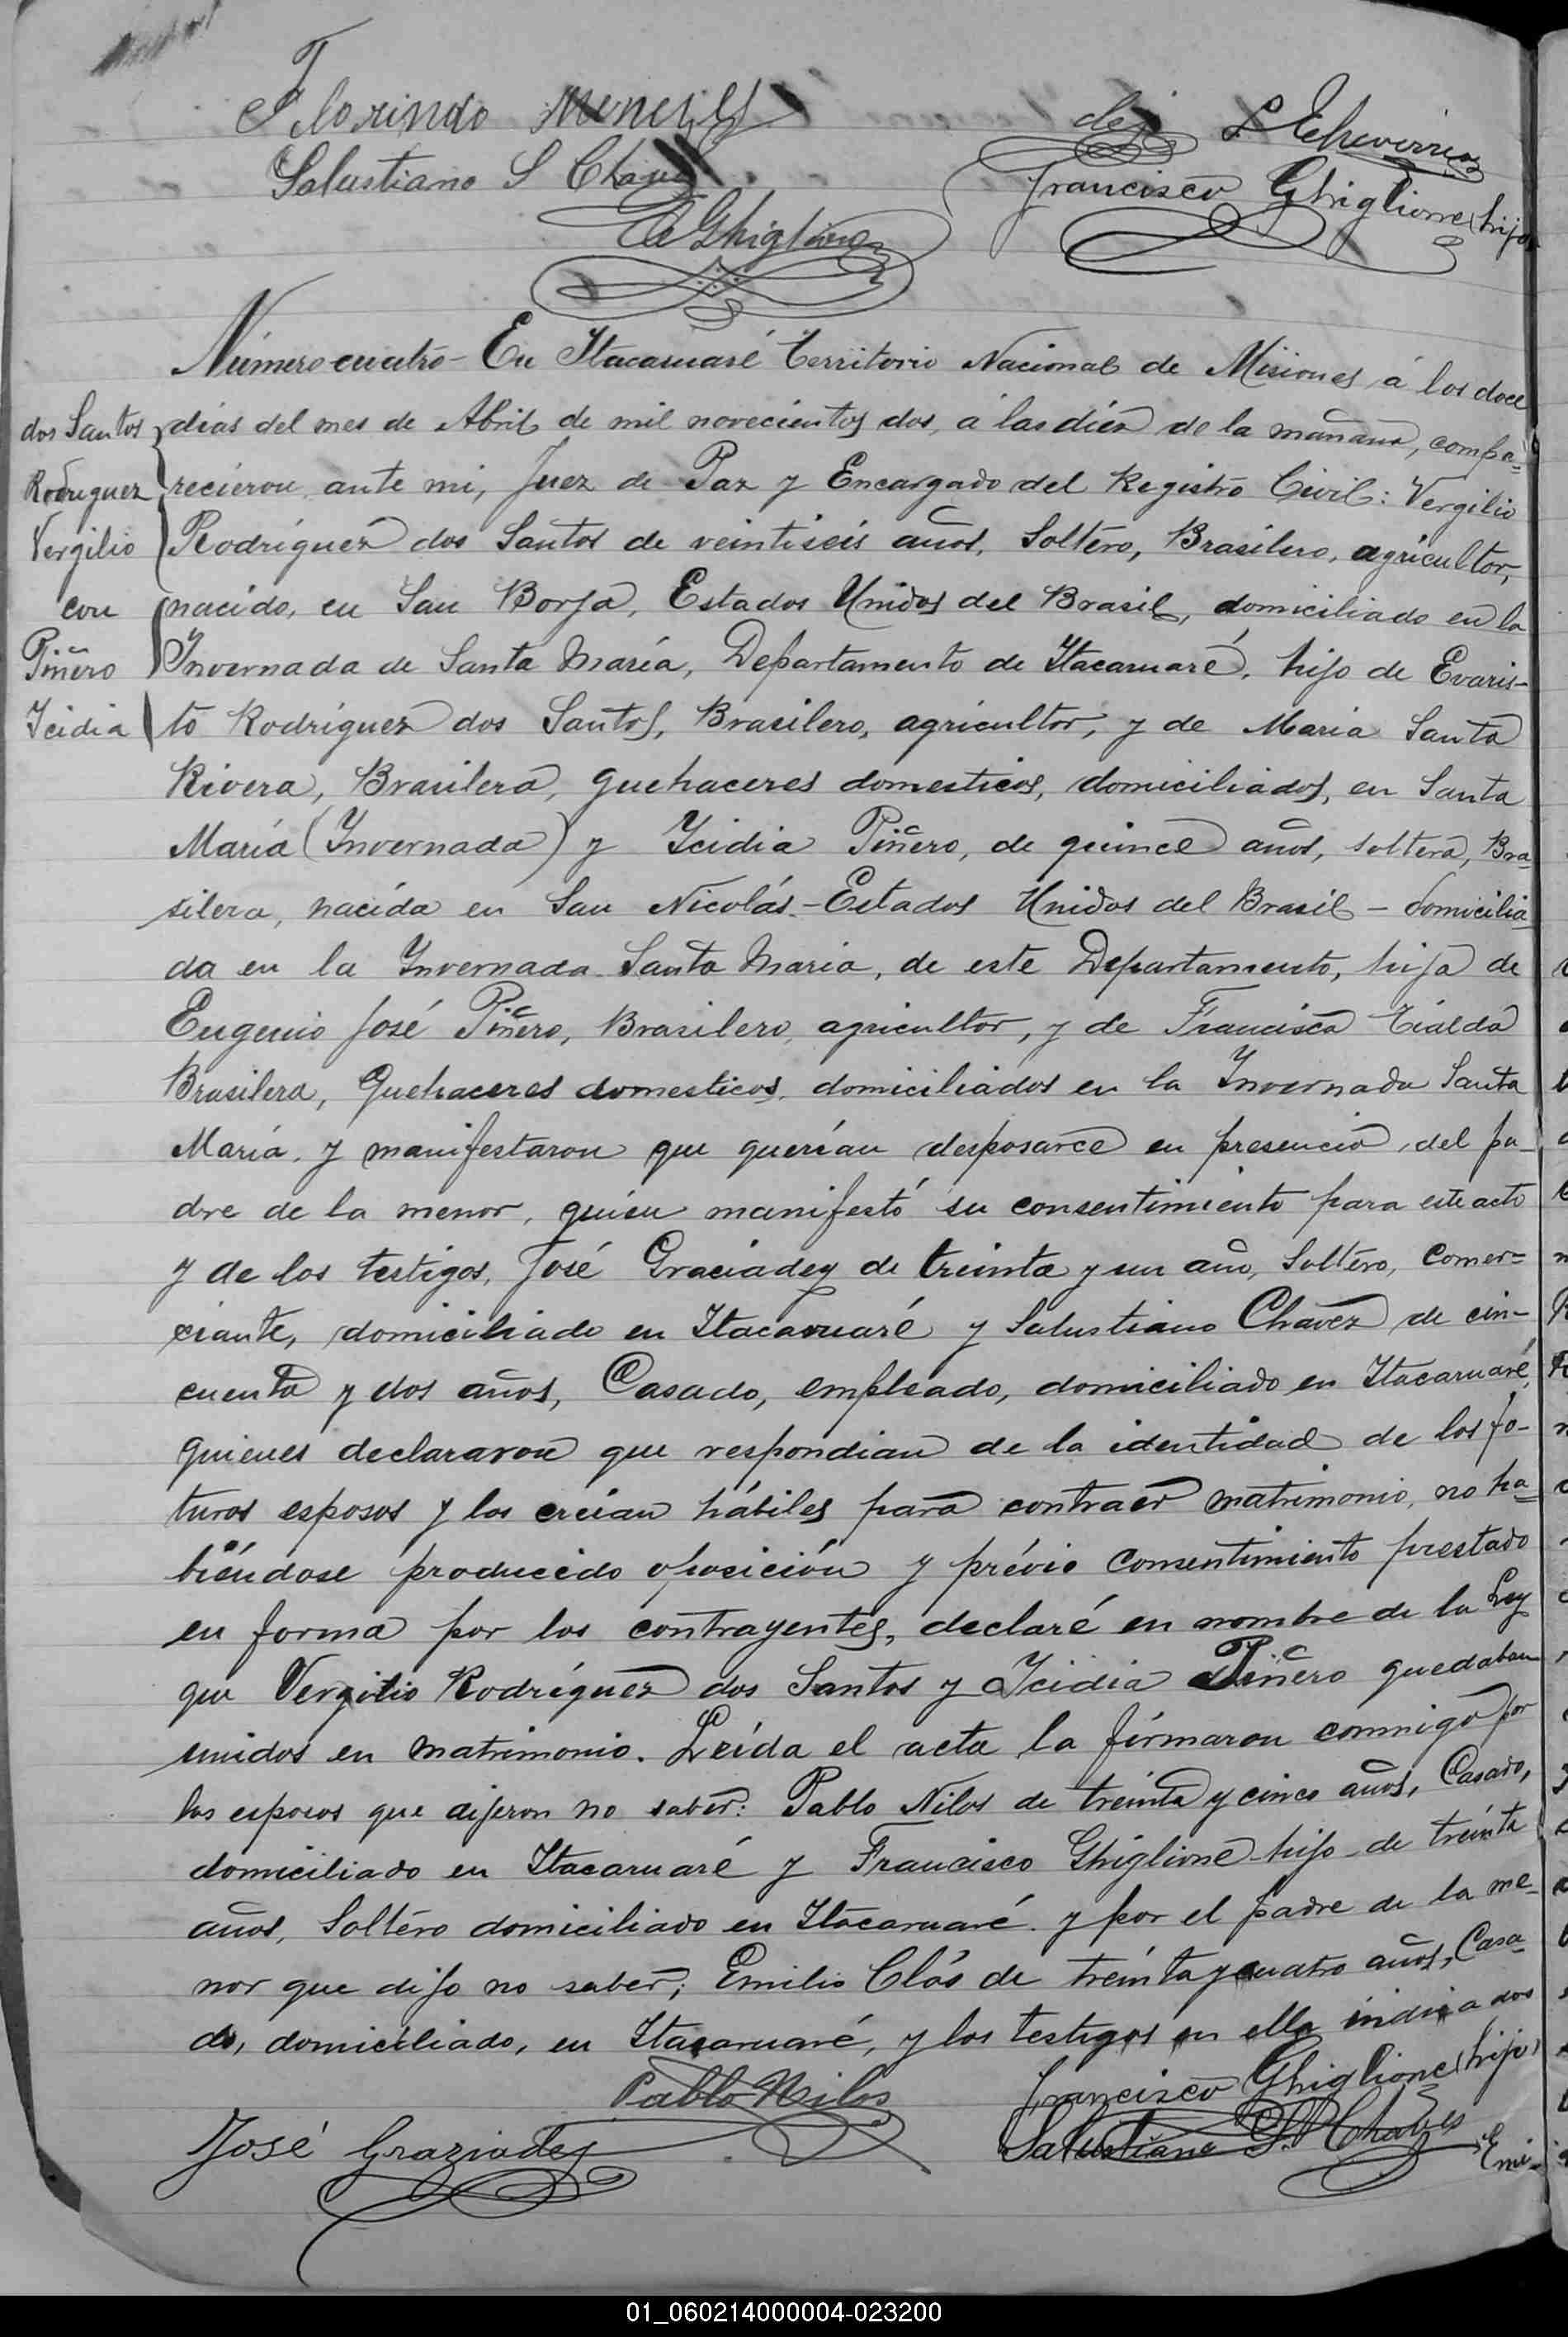 Florindo Meneses
dej L Echeverria
Salustiano S Chavez
Francisco Ghiglione (hijo)
Ghiglione
Número cuatro - En Itacaruaré Territorio Nacional de Misiones á los doce
dias del mes de Abril de mil novecientos dos, á las diéz de la mañana, compa=
recieron ante mi, Juez de Paz y Encargado del Registro Civil: Vergilio
Rodriguez dos Santos de veintiseis años, Soltero, Brasilero, agricultor,
nacido, en San Borja, Estados Unidos del Brasil, domiciliado en la
Invernada de Santa María, Departamento de Itacaruaré, hijo de Evaris-
to Rodriguez dos Santos, Brasilero, agricultor, y de Maria Santa
Rivera, Brasilera, quehaceres domesticos, domiciliados, en Santa
María (Invernada) y Icidia Piñero, de quince años, soltera, Bra-
silera, nacida en San Nicolás - Estados Unidos del Brasil - domicilia-
da en la Invernada Santa Maria, de este Departamento, hija de
Eugenio José Piñero, Brasilero, agricultor, y de Francisca Tialda
Brasilera, Quehaceres domesticos, domiciliados en la Invernada Santa
María, y manifestaron que querían desposarce en presencia del pa-
dre de la menor, quien manifestó su consentimiento para este acto
y de los testigos, José Graciadey de treinta y un año, Soltero, Comer=
ciante, domiciliado en Itacaruaré y Salustiano Chavez de cin-
cuenta y dos años, Casado, empleado, domiciliado en Itacaruaré,
quienes declararon que respondian de la identidad de los fo-
turos esposos y los creian hábiles para contraer matrimonio, no ha-
biéndose producido oposición y prévio consentimiento prestado
en forma por los contrayentes, declaré en nombre de la Ley
que Vergilio Rodríguez dos Santos y Icidia Piñero quedaban
unidos en matrimonio. Leída el acta la firmaron conmigo por
los esposos que dijeron no saber: Pablo Nilos de treinta y cinco años, Casado,
domiciliado en Itacaruaré y Francisco Ghiglione hijo de treinta
años, Soltero domiciliado en Itacaruaré y por el padre de la me-
nor que dijo no saber; Emilio Clós de treinta y cuatro años, Casa-
do, domiciliado, en Itacaruaré, y los testigos en ella indicados
dos Santos
Rodriguez
Vergilio
con
Piñero
Icidia
Pablo Nilos
Francisco Ghiglione (hijo)
José Graziadey
Salustiano S. Chavez
Emi-
01_060214000004-023200